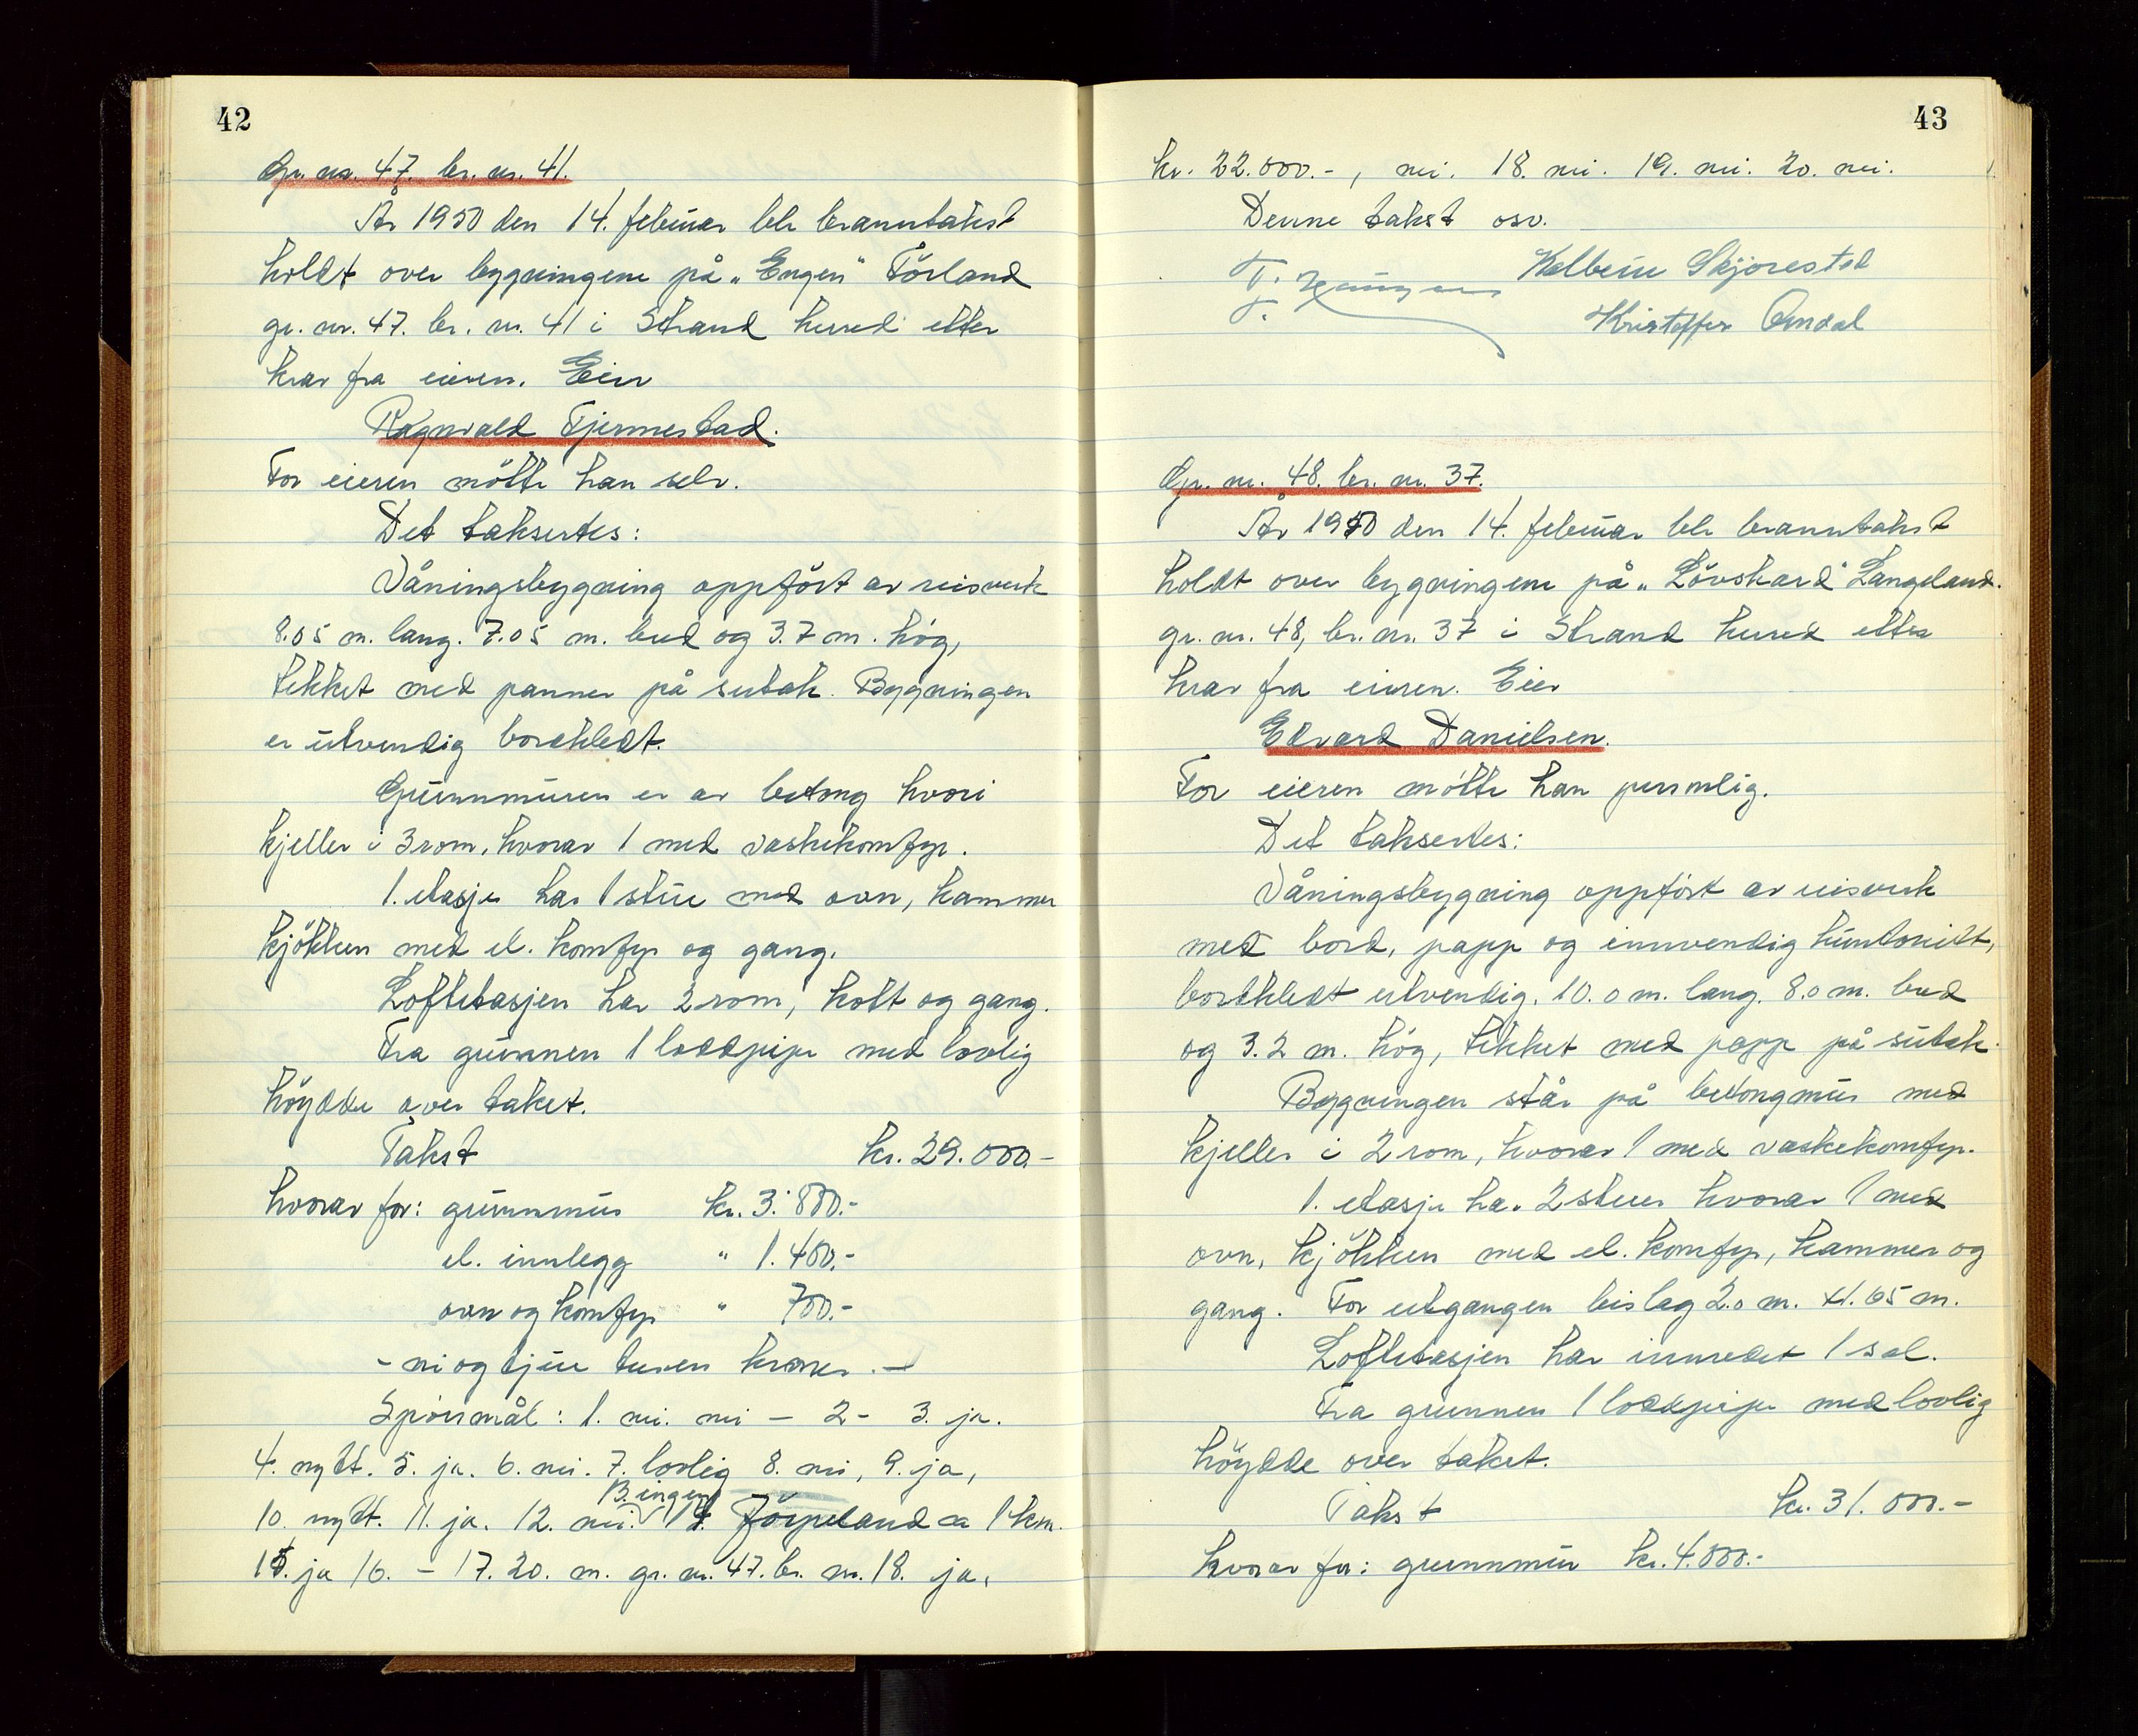 42
Gr. nr. 47. br. nr. 41.
År 1950 den 14. februar ble branntakst
holdt over bygningene på "Engen" Tørland
gr. nr. 47. br. nr. 41 i Strand herred etter
krav fra eieren. Eier
Ragnvald Tjermestad.
For eieren møtte han selv.
Det taksertes:
Våningsbygning oppført av reisverk
8.05 m. lang. 7.05 m. bred og 3.7 m. høg,
tekket med panner på sutak. Bygningen
er utvendig bordkledt.
Grunnmuren er av betong hvori
kjeller i 3 rom, hvorav 1 med vaskekomfyr.
1. etasje har 1 stue med ovn, kammer
kjøkken med el. komfyr og gang.
Loftetasjen har 2 rom, kott og gang.
Fra grunnen 1 loddpipe med lovlig
høydde over taket.
Takst kr. 29.000.-
hvorav for: grunnmur kr. 3.800.-
el. innlegg " 1.400.-
ovn og komfyr " 700.-
- ni og tjue tusen kroner. -
Spørsmål: 1. nei. nei - 2 - 3. ja.
4. nytt. 5. ja. 6. nei. 7. lovlig 8. nei, 9. ja,
10. nytt. 11. ja. 12. nei. 13. ingen 14. Jørpeland ca 1 km.
15. ja 16. - 17. 20. m. gr. nr. 47. br. nr. 18. ja,
43
kr. 22.000.-, nei. 18. nei. 19. nei. 20. nei.
Denne takst osv.
T. Kolbein Skjørestad
Kristoffer Omdal
Gr. nr. 48. br. nr. 37.
År 1950 den 14. februar ble branntakst
holdt over bygningene på "Løvskard" Langeland.
gr. nr. 48, br. nr. 37 i Strand herred etter
krav fra eieren. Eier
Edvard Danielsen.
For eieren møtte han personlig.
Det taksertes:
Våningsbygning oppført av reisverk
med bord, papp og innvendig huntonitt,
bordkledt utvendig. 10.0 m. lang. 8.0 m. bred
og 3.2 m. høg, tekket med papp på sutak.
Bygningen står på betongmur med
kjeller i 2 rom, hvorav 1 med vaskekomfyr.
1. etasje har 2 stuer hvorav 1 med
ovn, kjøkken med el. komfyr, kammer og
gang. For utgangen bislag 2.0 m. x 1.65 m.
Loftetasjen har innredet 1 sal.
Fra grunnen 1 loddpipe med lovlig
høydde over taket.
Takst kr. 31.000.-
hvorav for: grunnmur kr. 4.000.-